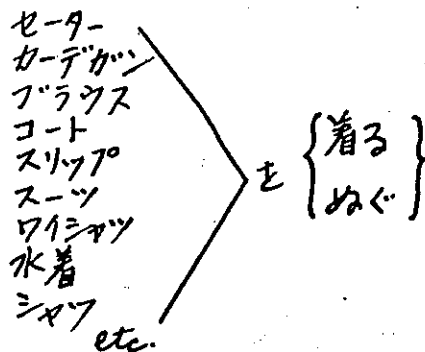 セーター
カーデガン
ブラウス
コート
スリップ
スーツ
ワイシャツ
水着
シャツ
etc.
を
着る
ぬぐ